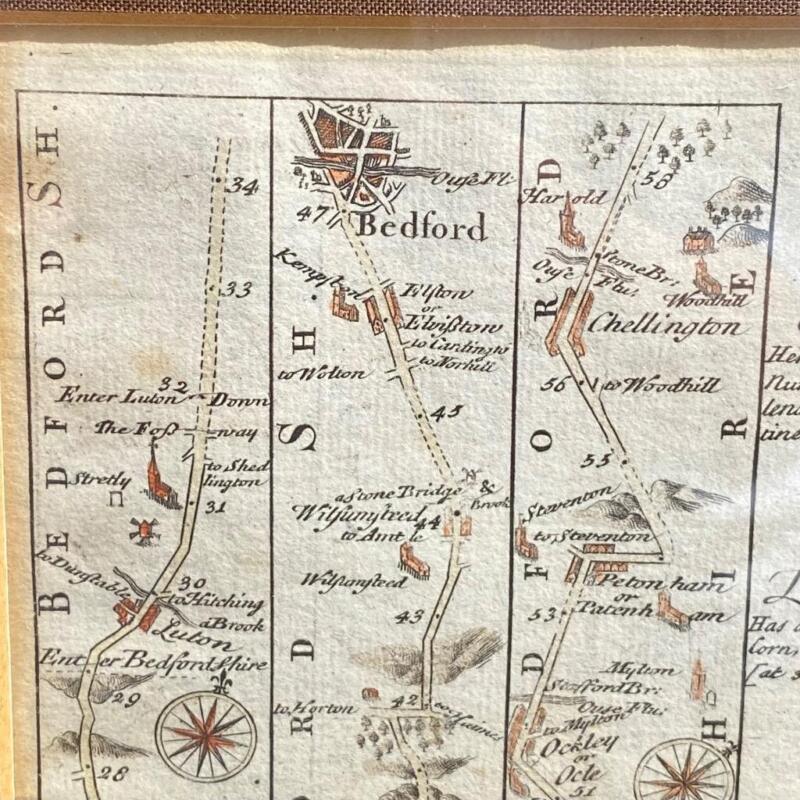 BEDFORD SH.
34
33
32
Enter Luton Down
The Foß way
to Shed
lington
Stretly
31
to Dunstable
30
to Hitching
a Brook
Luton
Enter Bedfordshire
29
28
SH.
RD
Ouse Fl:
47
Bedford
Kempsted
Elston
or
Elvißton
to Cardingto
to Norhill
to Wolton
45
a Stone Bridge &
Brook
Wilsumsteed
44
to Amt le
Wilsumsteed
43
42
to Horton
DFORD
58
Harold
Stone Br:
Ouse Flu:
Woodhill
Chellington
56
to Woodhill
55
Steventon
to Steventon
Petonham
or
Patenham
53
Mylton
Stafford Br:
Ouse Flu:
to Mylton
Ockley
or
Ocle
51
HIRE
Has a
corn,
[at s